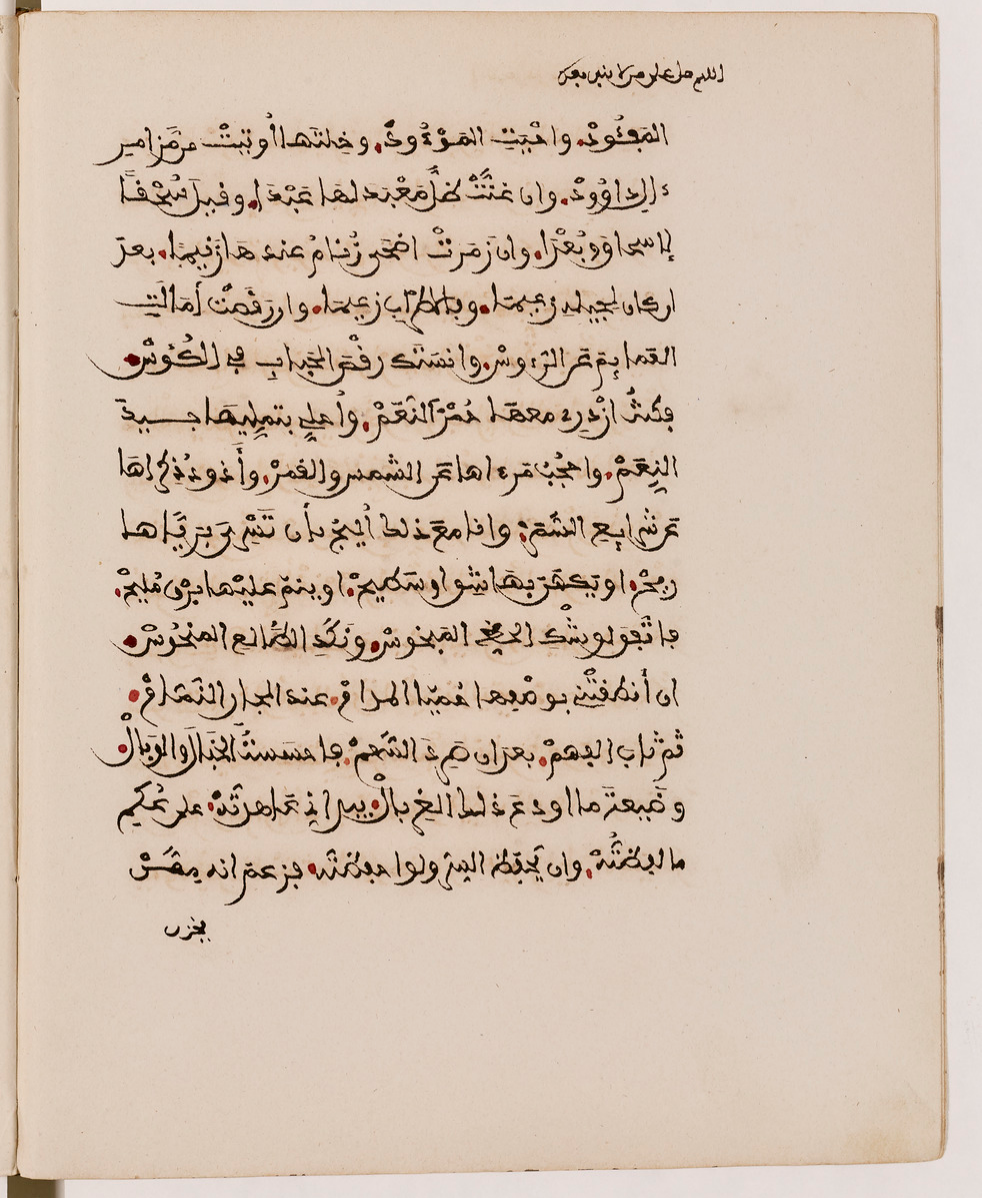 اللهم صل على من لا نبي بعده
المَفْئُودْ. واحْيَتِ المَوْءُودْ. وخِلتَها أُوتيَتْ من مَزامير
ءال داوُودْ. وان غنَّتْ ظلَّ مَعْبَد لها عَبْدَا. وقيل سُحْقًا
لإسحاق وبُعْدَا. وان زمرَتْ اضحى زُنَامُ عندها زَنيمَا. بعد
ان كان لجيله زعيمَا. وبالاطراب زعيمَا. وان رقصَتْ أمَالَتِ
العمايم عن الرءوسْ. وانسَتك رقْصَ الحَبابِ في الكُئوسْ
فكنتُ ازْدرى معها حُمْرَ النَّعَمْ. وأُحلي بتملِّيها جيدَ
النِّعَمْ. واحجُبُ مرءاها عن الشمس والقمرْ. وأذُودُ ذكراها
عن شرايع السَّمَرْ. وانا مع ذلك أُليحُ بأن تَسْرِىَ بريَّاها
ريحْ. او يَكهَنَ بها شق او سَطِيحْ. او ينمّ عليها برق مُليحْ.
فاتَّفق لوشْك الحظِّ المبخوسْ. ونَكَدِ الطَّالع المنحُوسْ.
ان أنطقتْني بوصْفِها حُميَّا المدامْ. عند الجار النَّمَّامْ.
ثم ثاب الفهمْ. بعد ان صَرِدَ السَّهمْ. فاحسَستُ الخَبَالَ والوَبالْ.
وضَيعةَ ما اودعَ ذلك الغربالْ. بيد اني عَاهدتُهْ. على عَكْم
ما لفظتُهْ. وان يَحْفظ السر ولو احفظته. فزعم انه
يخزن